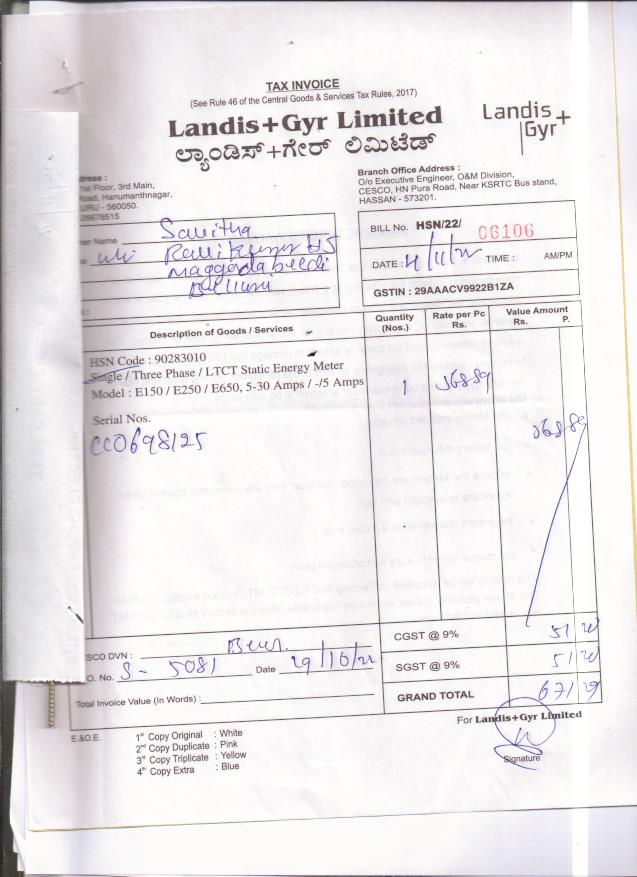 TAX INVOICE
(See Rule 46 of the Central Goods & Services Tax Rules, 2017)
Landis+Gyr Limited
ಲ್ಯಾಂಡಿಸ್+ಗೇರ್ ಲಿಮಿಟೆಡ್
Landis+
Gyr
Floor, 3rd Main,
Road, Hanumanthnagar,
- 560050.
Branch Office Address :
O/o Executive Engineer, O&M Division,
CESCO, HN Pura Road, Near KSRTC Bus stand,
HASSAN - 573201.
Name Savitha
BILL No. HSN/22/ 06106
DATE : 4/11/22 TIME : AM/PM
GSTIN : 29AAACV9922B1ZA
Description of Goods / Services
Quantity (Nos.)
Rate per Pc Rs.
Value Amount Rs. P.
HSN Code : 90283010
Single / Three Phase / LTCT Static Energy Meter
Model : E150 / E250 / E650, 5-30 Amps / -/5 Amps
1
Serial Nos.
CC0698125
CESCO DVN :
O. No. S - 5081 Date 29/10/22
Total Invoice Value (In Words) :
CGST @ 9% 51 20
SGST @ 9% 51 20
GRAND TOTAL 671 29
For Landis+Gyr Limited
Signature
E.&O.E.
1st Copy Original : White
2nd Copy Duplicate : Pink
3rd Copy Triplicate : Yellow
4th Copy Extra : Blue